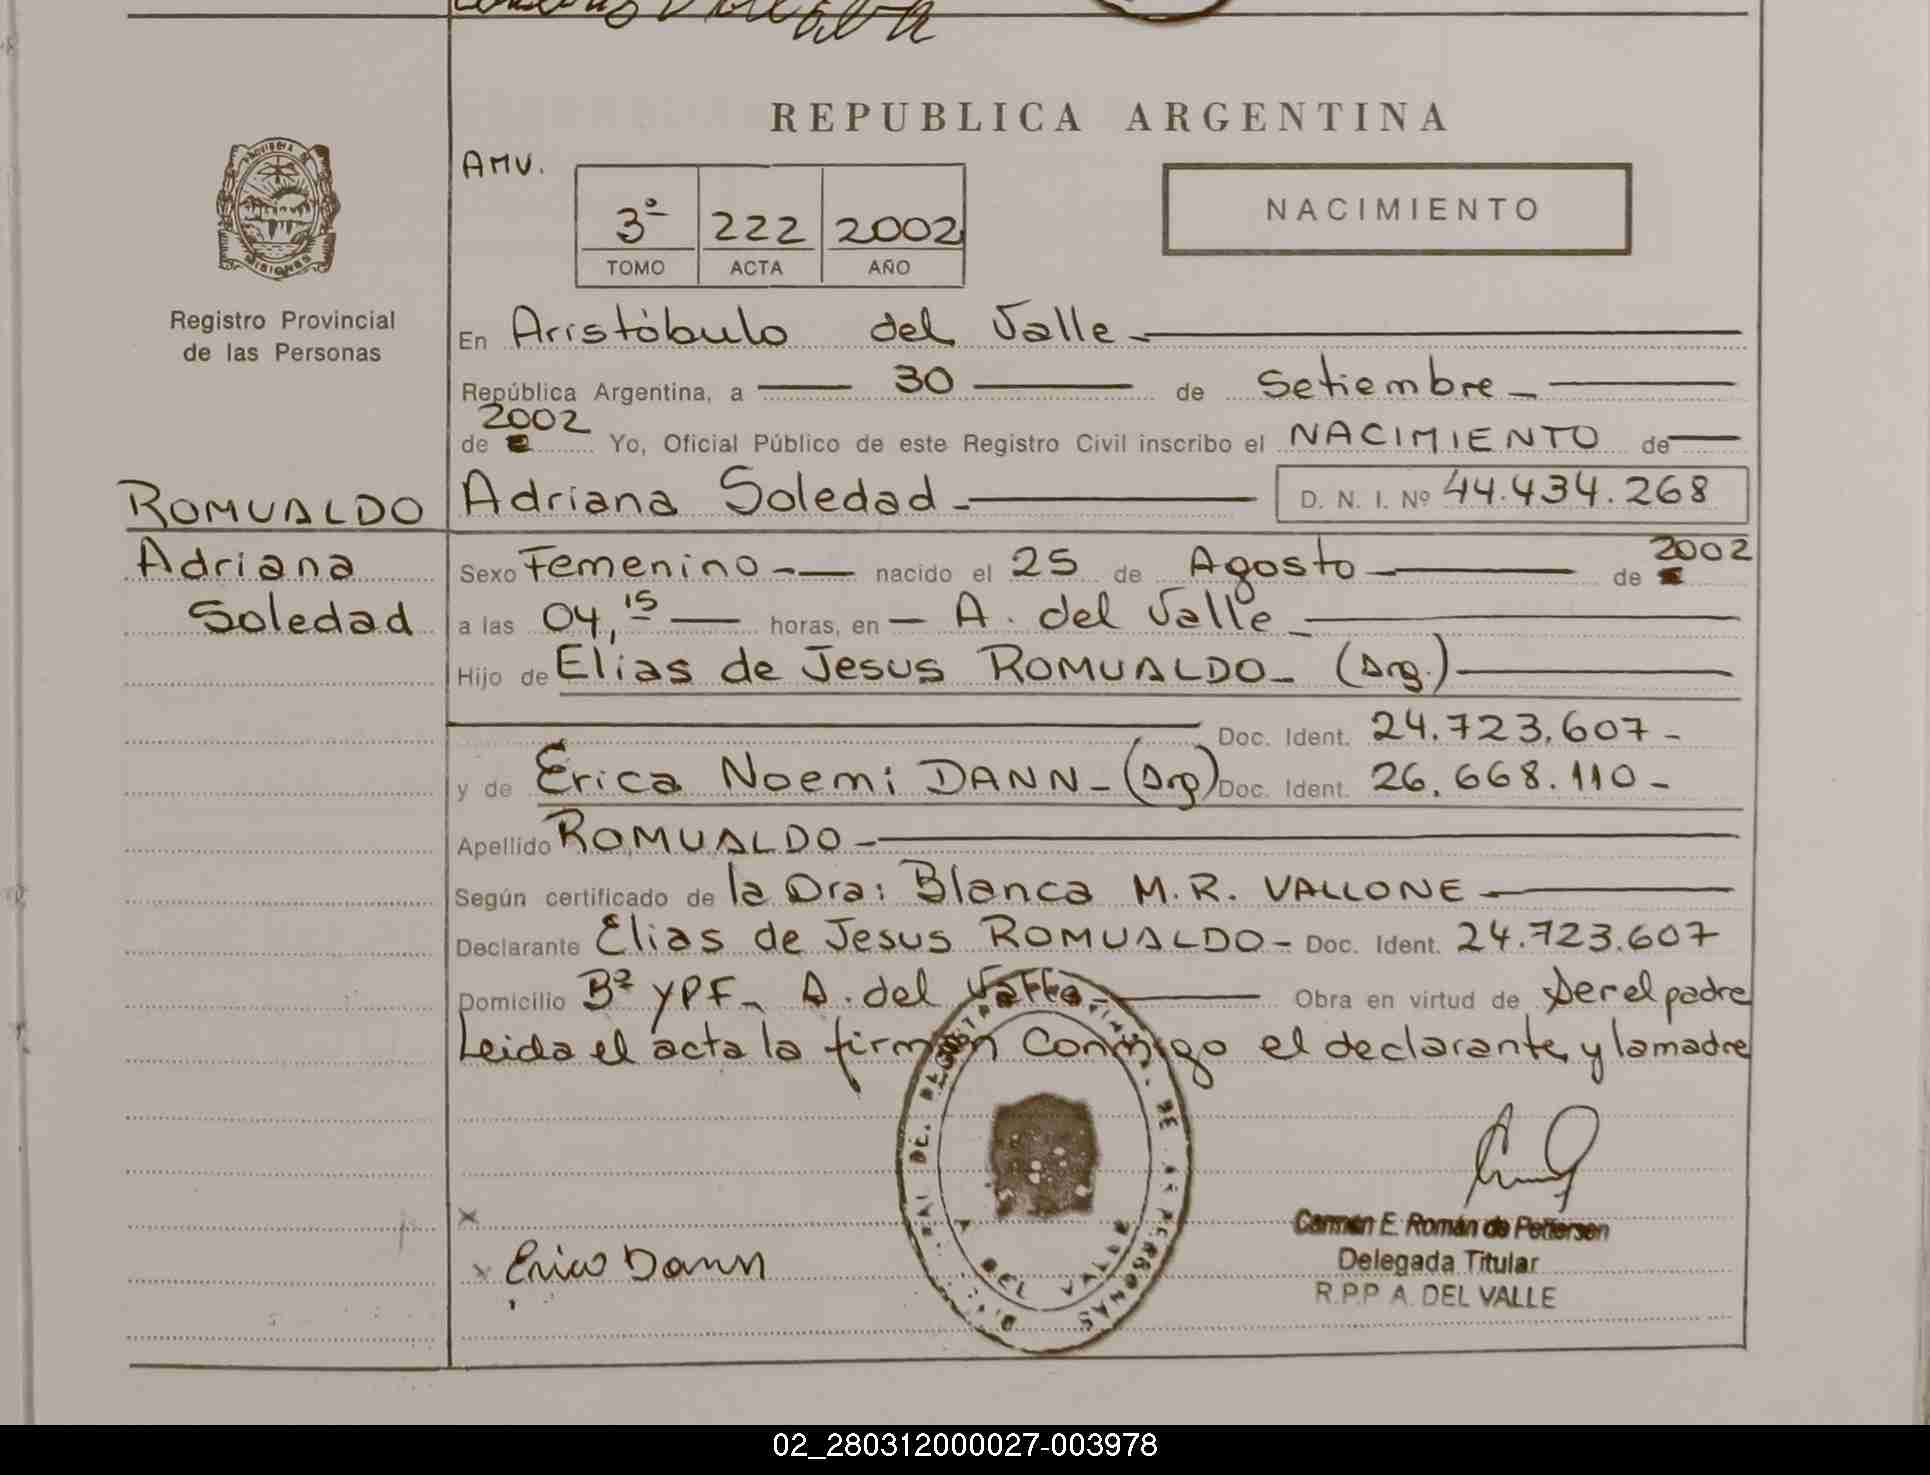 REPUBLICA ARGENTINA
AMV.
3º 222 2002
TOMO ACTA AÑO
NACIMIENTO
PROVINCIA DE MISIONES
Registro Provincial
de las Personas
En Aristóbulo del Valle
República Argentina, a 30 de Setiembre
de 2002 Yo, Oficial Público de este Registro Civil inscribo el NACIMIENTO de
ROMUALDO Adriana Soledad D. N. I. Nº 44.434.268
Adriana
Soledad
Sexo Femenino nacido el 25 de Agosto de 2002
a las 04,15 horas, en A. del Valle
Hijo de Elias de Jesus ROMUALDO (Arg.)
Doc. Ident. 24.723.607
y de Erica Noemi DANN (Arg) Doc. Ident. 26.668.110
Apellido ROMUALDO
Según certificado de la Dra: Blanca M.R. VALLONE
Declarante Elias de Jesus ROMUALDO Doc. Ident. 24.723.607
Domicilio Bº YPF A. del Valle Obra en virtud de Ser el padre
Leida el acta la firman conmigo el declarante y la madre
Erica Dann
Carmen E. Román de Pettersen
Delegada Titular
R.P.P A. DEL VALLE
02_280312000027-003978